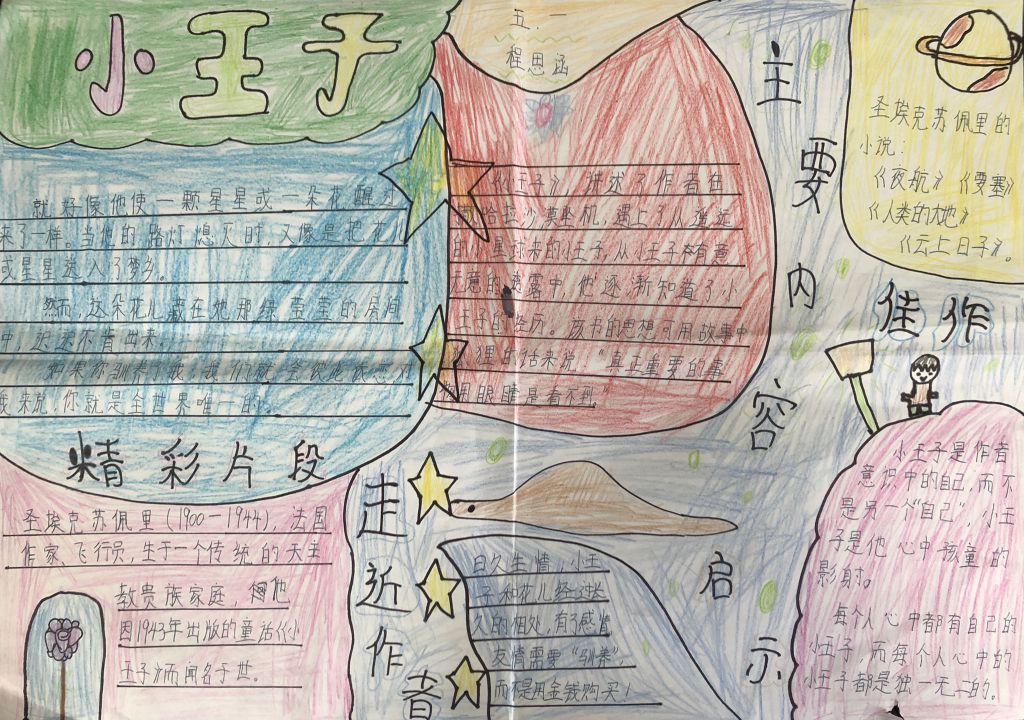 小王子
五.一
程思涵
就好像他使一颗星星或一朵花醒过
来了一样。当他的路灯熄灭时,又像是把花儿
或星星送入了梦乡。
然而,这朵花儿藏在她那绿莹莹的房间
中,迟迟不肯出来。
如果你驯养了我,我们
我来说,你就是全世界唯一的。
精彩片段
《小王子》讲述了作者在
撒哈拉沙漠坠机,遇上了从遥远
的小星球来的小王子,从小王子有意
无意的透露中,他逐渐知道了小
王子的经历。该书的思想可用故事中
狐狸的话来说:"真正重要的事
用眼睛是看不到
主要内容
圣埃克苏佩里的
小说:
《夜航》《要塞》
《人类的大地》
《云上日子》。
佳作
圣埃克苏佩里(1900—1944),法国
作家、飞行员,生于一个传统的天主
教贵族家庭,他
因1943年出版的童话《小
王子》而闻名于世。
走近作者
日久生情,小王
子和花儿经过长
久的相处,有了感情
友情需要"驯养",
而不是用金钱购买!
启示
小王子是作者
意识中的自己,而不
是另一个"自己",小王
子是他心中孩童的
影射。
每个人心中都有自己的
小王子,而每个人心中的
小王子都是独一无二的。